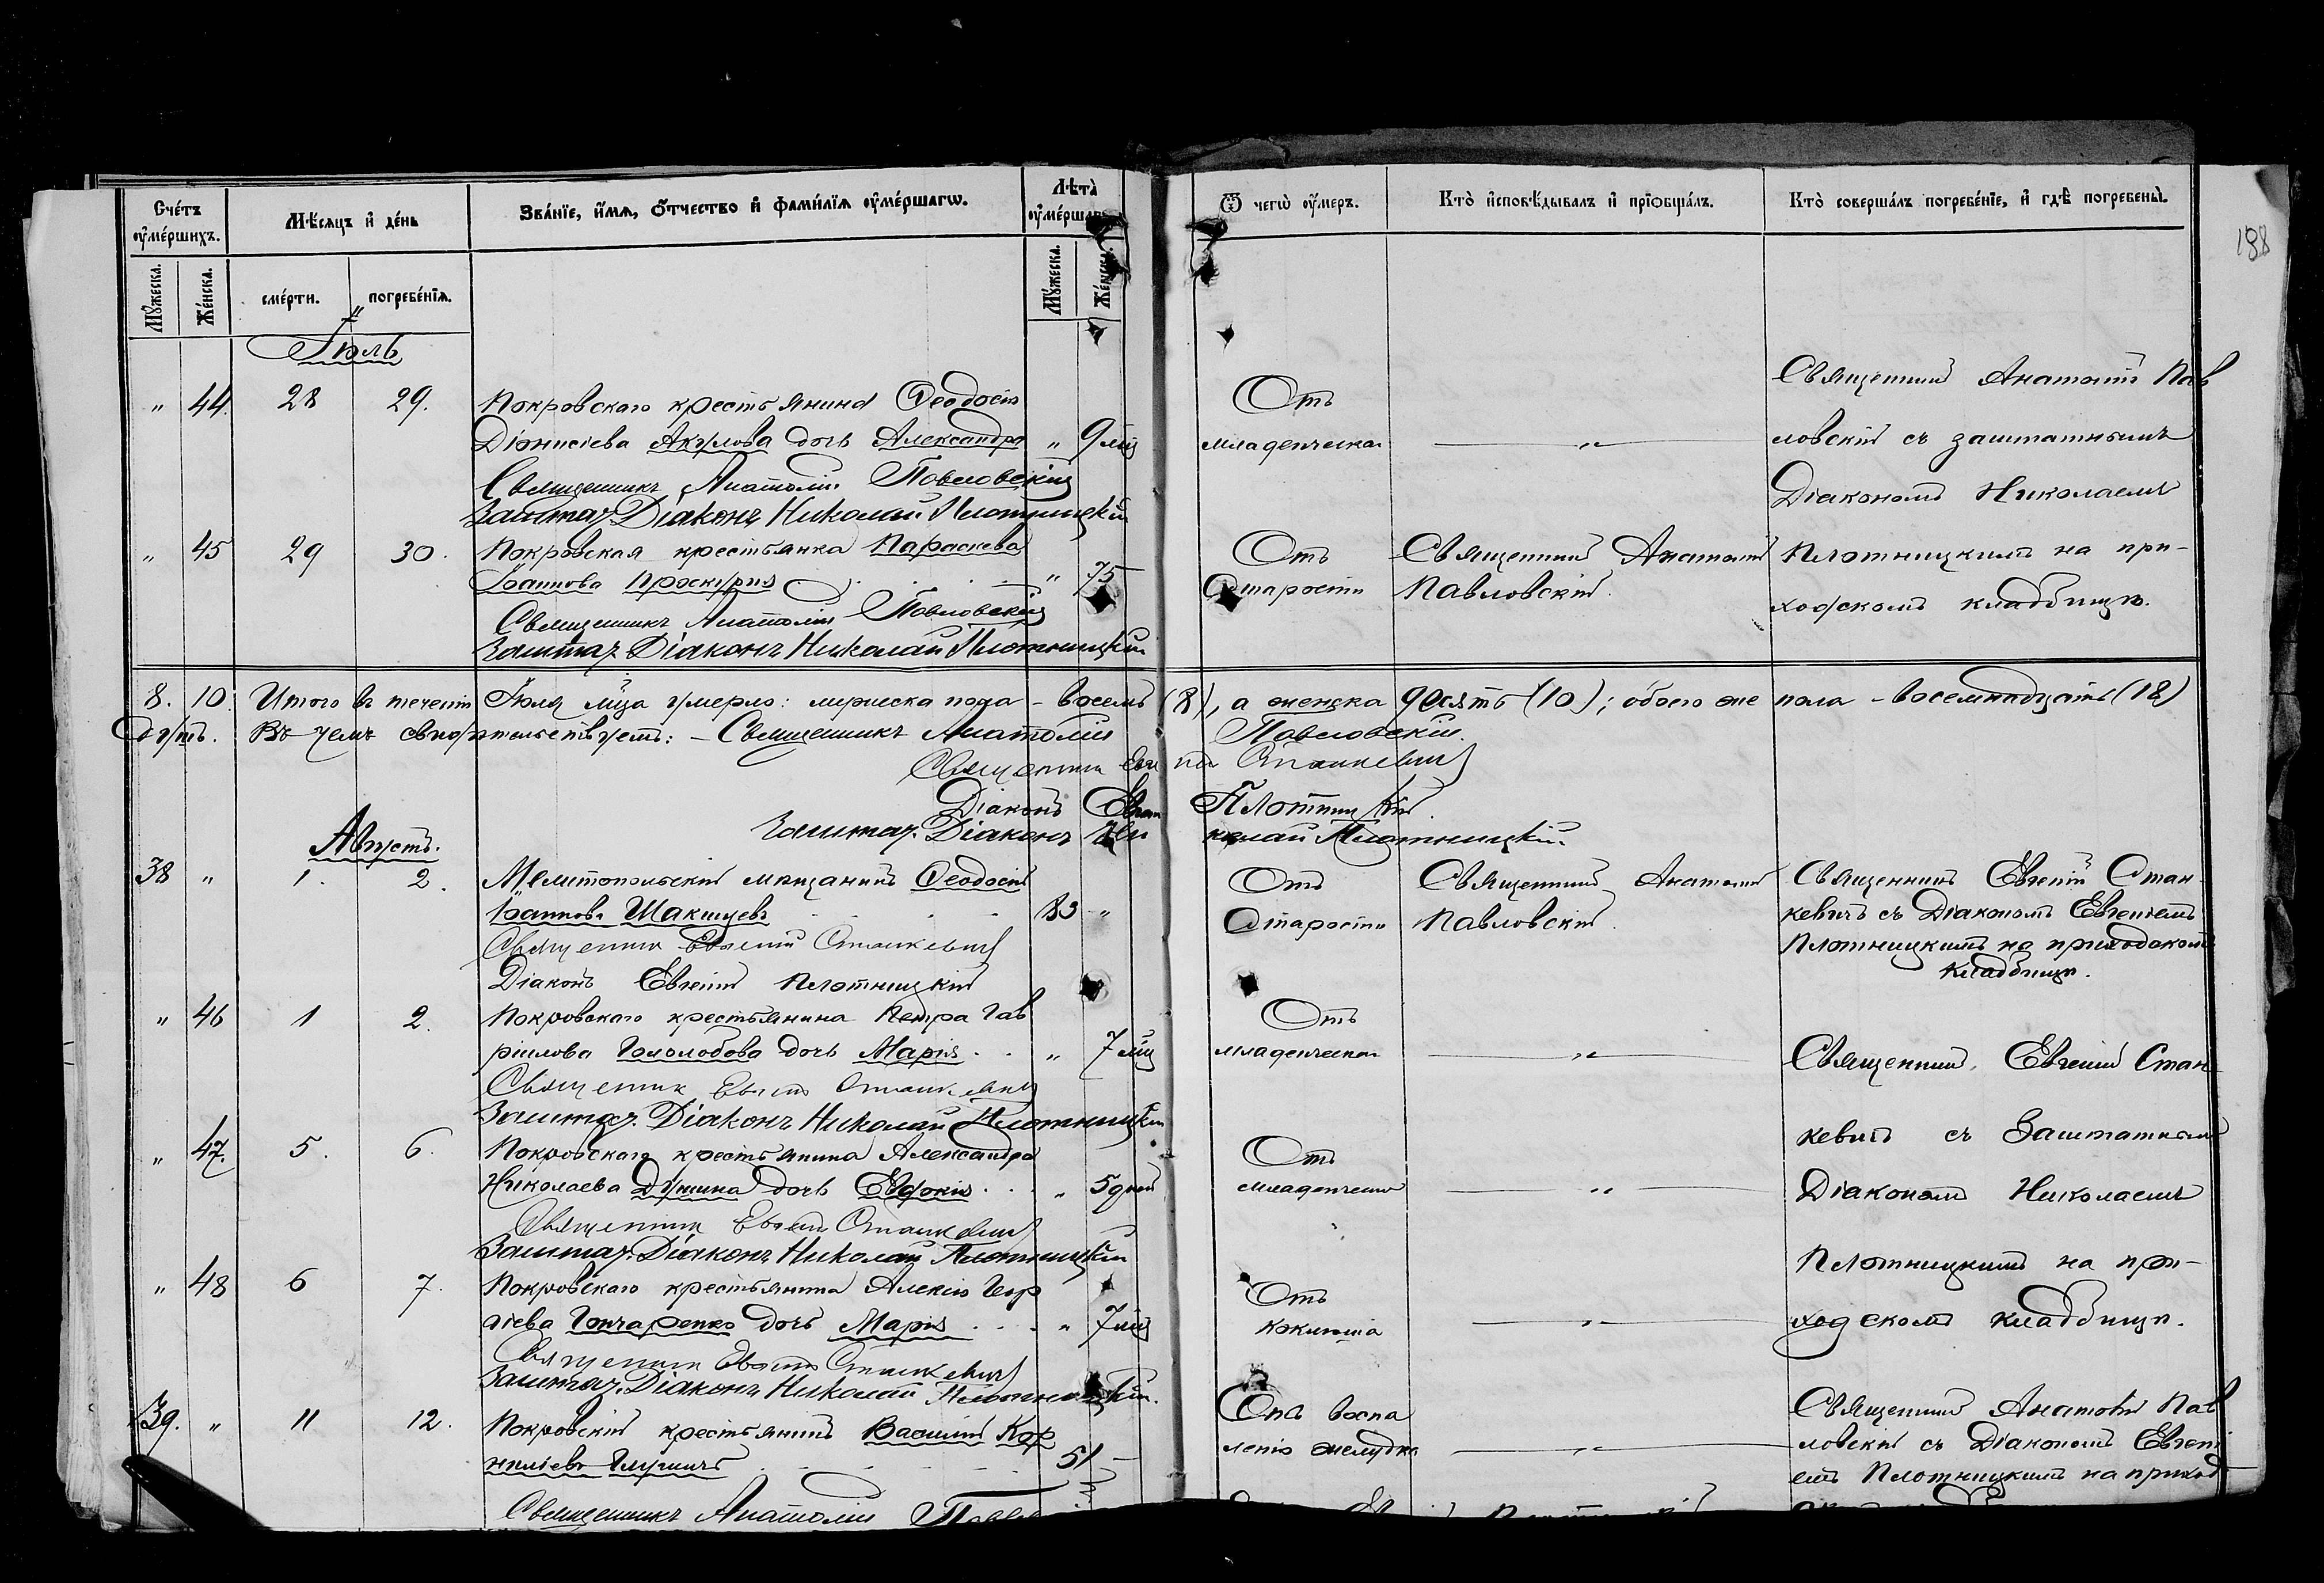 Счетъ умершихъ.
Мѣсяцъ и день
Званіе, имя, отчество и фамилія умершаго.
Лѣта умершаго
Ѿ чего умеръ.
Кто исповѣдывалъ и пріобщалъ.
Кто совершалъ погребеніе, и гдѣ погребены.
188
Мужеска.
Женска.
смерти.
погребенія.
Мужеска.
Женска.
Іюль
Священникъ Анатолій Пав
„ 44. 28 29. Покровскаго крестьянина Ѳеодосія
Отъ
Діонисіева Акулова дочь Александра „ 9 мѣц
младенческой — „ —
ловскій съ заштатнымъ
Священникъ Анатолій Павловскій
Діакономъ Николаемъ
Заштат. Діаконъ Николай Плотницкій
„ 45 29 30. Покровская крестьянка Параскева
Отъ Священникъ Анатолій Плотницкимъ на при-
Іоаннова Проскурня „ 75
Старости Павловскій.
ходскомъ кладбищѣ.
Священникъ Анатолій Павловскій
Заштат. Діаконъ Николай Плотницкій
8. 10. Итого въ теченіи Іюля мѣца умерло: мужеска пола – восемь (8), а женска десять (10); обоего же пола – восемнадцать (18)
душъ. Въ чемъ свидѣтельствуетъ: – Священникъ Анатолій Павловскій.
Священникъ Евгеній Станкевичъ
Діаконъ Евгеній Плотницкій.
Заштат. Діаконъ Николай Плотницкій.
Августъ.
38 „ 1. 2. Мелитопольскій мѣщанинъ Ѳеодосій
Отъ Священникъ Анатолій Священникъ Евгеній Стан-
Іоанновъ Шакицевъ 83 „
Старости Павловскій.
кевичъ съ Діакономъ Евгеніемъ
Священникъ Евгеній Станкевичъ
Плотницкимъ на приходскомъ
кладбищѣ.
Діаконъ Евгеній Плотницкій
„ 46 1 2. Покровскаго крестьянина Петра Гав
Отъ
ріилова Гололобова дочь Марія „ 7 мѣц
младенческой — „ —
Священникъ Евгеній Стан-
Священникъ Евгеній Станкевичъ
Заштат. Діаконъ Николай Плотницкій
кевичъ съ Заштатнымъ
„ 47. 5. 6. Покровскаго крестьянина Александра
Отъ
Николаева Душина дочь Евдокія „ 5 дней
младенческой — „ —
Діакономъ Николаемъ
Священникъ Евгеній Станкевичъ
Заштат. Діаконъ Николай Плотницкій
Плотницкимъ на при-
„ 48 6 7. Покровскаго крестьянина Алексія Геор
Отъ
гіева Гончаренко дочь Марія „ 7 мѣц
коклюша — „ —
ходскомъ кладбищѣ.
Священникъ Евгеній Станкевичъ
Заштат. Діаконъ Николай Плотницкій.
39. „ 11 12. Покровскій крестьянинъ Василій Кор
Отъ воспа
Священникъ Анатолій Пав
ниліевъ Глушичъ 51 –
ленія желудка — „ —
ловскій съ Діакономъ Евгені
емъ Плотницкимъ на приход
Священникъ Анатолій